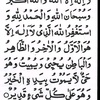 وسبحان الله والحمد لله و
استغفر الله الذي لا إله إلا
هو الأول والآخر والظاهر
والباطن يحيي ويميت وهو
حي لا يموت بيده الخير
وهو على كل شيء قدير